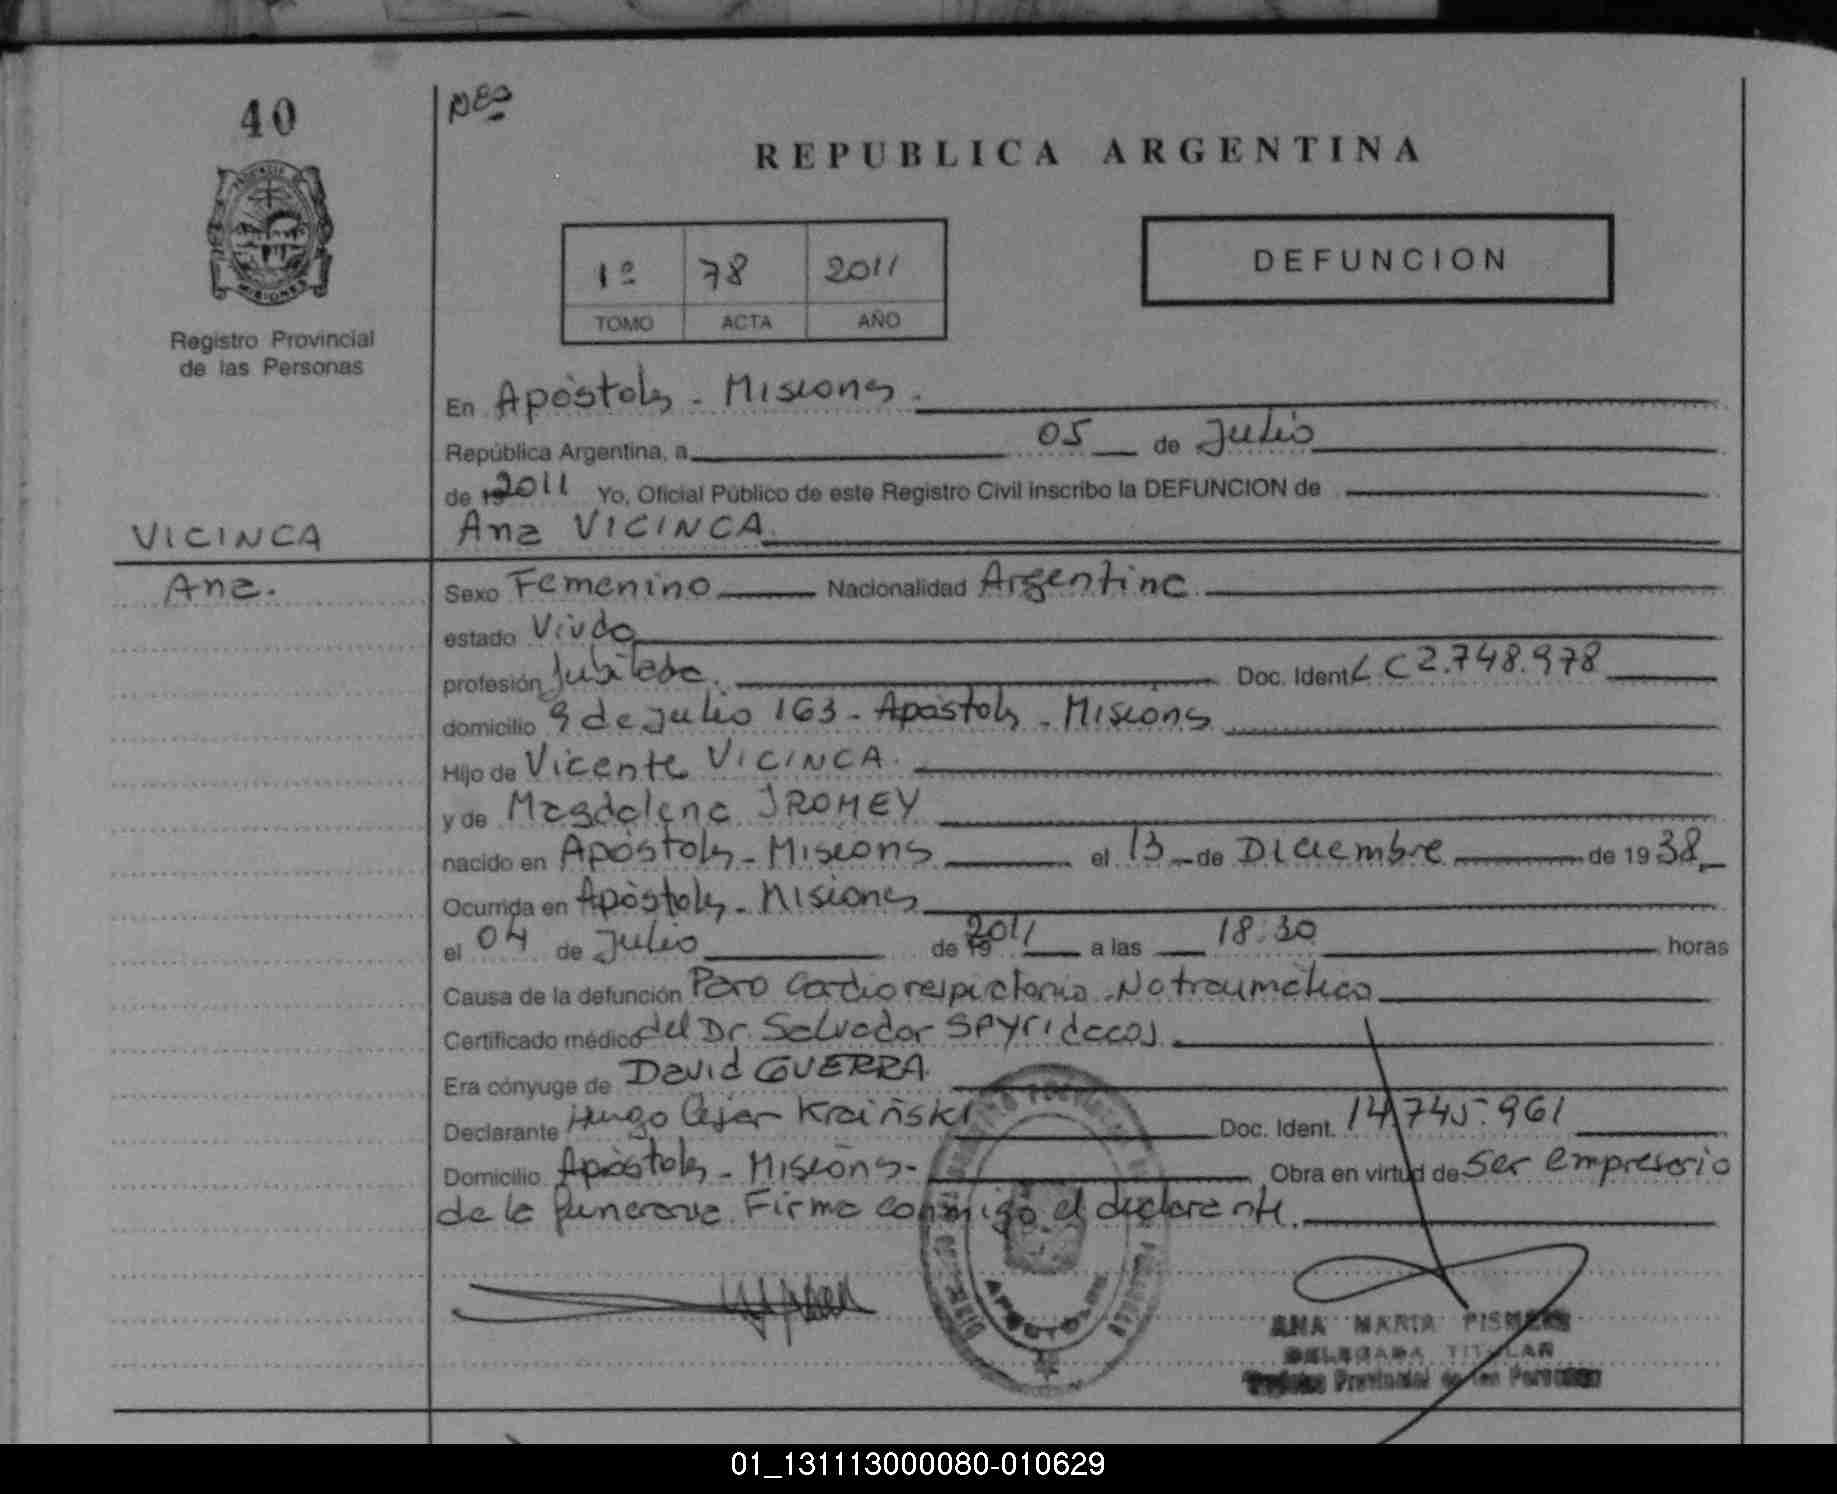 40
REPUBLICA ARGENTINA
1º 78 2011
TOMO ACTA AÑO
DEFUNCION
MISIONES
Registro Provincial
de las Personas
En Apóstoles - Misiones.
República Argentina, a 05 de Julio
de 19 2011 Yo, Oficial Público de este Registro Civil inscribo la DEFUNCION de
VICINCA
Ana VICINCA.
Ana.
Sexo Femenino Nacionalidad Argentina
estado Viuda
profesión Jubilada. Doc. Ident. LC 2.748.978
domicilio 9 de julio 163 - Apóstoles - Misiones
Hijo de Vicente VICINCA.
y de Magdalena JROMEY
nacido en Apóstoles - Misiones el 13 de Diciembre de 1938
Ocurrida en Apóstoles - Misiones
el 04 de Julio de 19 2011 a las 18:30 horas
Causa de la defunción Paro Cardiorespiratorio - No traumático
Certificado médico del Dr. Salvador SPYRIdacos
Era cónyuge de David GUERRA.
Declarante Hugo César Kraiñski Doc. Ident. 14.745.961
Domicilio Apóstoles - Misiones - Obra en virtud de Ser empresario
de la funeraria. Firma conmigo el declarante.
APOSTOLES
ANA MARIA
DELEGADA TITULAR
Registro Provincial de las Personas
01_131113000080-010629